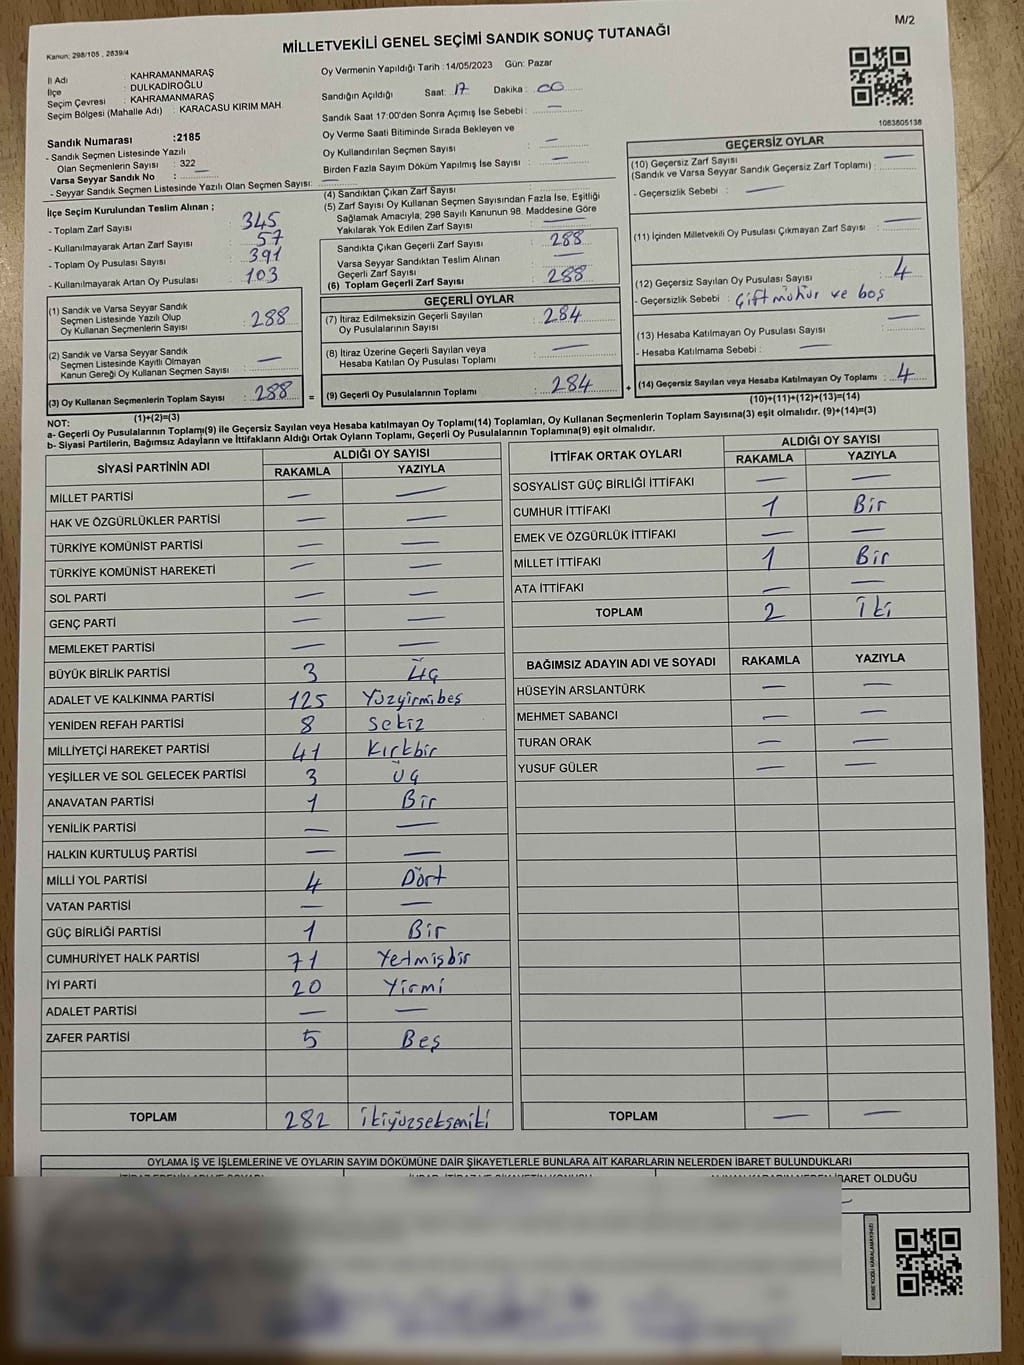 M/2
Kanun: 298/105 , 2839/4
MİLLETVEKİLİ GENEL SEÇİMİ SANDIK SONUÇ TUTANAĞI
İl Adı : KAHRAMANMARAŞ
İlçe : DULKADİROĞLU
Seçim Çevresi : KAHRAMANMARAŞ
Seçim Bölgesi (Mahalle Adı) : KARACASU KIRIM MAH.
Sandık Numarası :2185
- Sandık Seçmen Listesinde Yazılı
Olan Seçmenlerin Sayısı : 322
Varsa Seyyar Sandık No : —
- Seyyar Sandık Seçmen Listesinde Yazılı Olan Seçmen Sayısı: —
Oy Vermenin Yapıldığı Tarih :14/05/2023 Gün: Pazar
Sandığın Açıldığı Saat: 17 Dakika : 00
Sandık Saat 17:00'den Sonra Açımış İse Sebebi : —
Oy Verme Saati Bitiminde Sırada Bekleyen ve
Oy Kullandırılan Seçmen Sayısı : —
Birden Fazla Sayım Döküm Yapılmış İse Sayısı : —
1083805138
İlçe Seçim Kurulundan Teslim Alınan ;
- Toplam Zarf Sayısı : 345
- Kullanılmayarak Artan Zarf Sayısı : 57
- Toplam Oy Pusulası Sayısı : 391
- Kullanılmayarak Artan Oy Pusulası : 103
(1) Sandık ve Varsa Seyyar Sandık
Seçmen Listesinde Yazılı Olup
Oy Kullanan Seçmenlerin Sayısı : 288
(2) Sandık ve Varsa Seyyar Sandık
Seçmen Listesinde Kayıtlı Olmayan
Kanun Gereği Oy Kullanan Seçmen Sayısı : —
(3) Oy Kullanan Seçmenlerin Toplam Sayısı : 288 =
(1)+(2)=(3)
(4) Sandıktan Çıkan Zarf Sayısı :
(5) Zarf Sayısı Oy Kullanan Seçmen Sayısından Fazla İse, Eşitliği
Sağlamak Amacıyla; 298 Sayılı Kanunun 98. Maddesine Göre
Yakılarak Yok Edilen Zarf Sayısı : —
Sandıkta Çıkan Geçerli Zarf Sayısı : 288
Varsa Seyyar Sandıktan Teslim Alınan
Geçerli Zarf Sayısı : —
(6) Toplam Geçerli Zarf Sayısı : 288
GEÇERLİ OYLAR
(7) İtiraz Edilmeksizin Geçerli Sayılan
Oy Pusulalarının Sayısı : 284
(8) İtiraz Üzerine Geçerli Sayılan veya
Hesaba Katılan Oy Pusulası Toplamı : —
(9) Geçerli Oy Pusulalarının Toplamı : 284 +
GEÇERSİZ OYLAR
(10) Geçersiz Zarf Sayısı
(Sandık ve Varsa Seyyar Sandık Geçersiz Zarf Toplamı) : —
- Geçersizlik Sebebi : —
(11) İçinden Milletvekili Oy Pusulası Çıkmayan Zarf Sayısı : —
(12) Geçersiz Sayılan Oy Pusulası Sayısı : 4
- Geçersizlik Sebebi : Çift mühür ve boş
(13) Hesaba Katılmayan Oy Pusulası Sayısı : —
- Hesaba Katılmama Sebebi : —
(14) Geçersiz Sayılan veya Hesaba Katılmayan Oy Toplamı : 4
(10)+(11)+(12)+(13)=(14)
NOT:
a- Geçerli Oy Pusulalarının Toplamı(9) ile Geçersiz Sayılan veya Hesaba katılmayan Oy Toplamı(14) Toplamları, Oy Kullanan Seçmenlerin Toplam Sayısına(3) eşit olmalıdır. (9)+(14)=(3)
b- Siyasi Partilerin, Bağımsız Adayların ve İttifakların Aldığı Ortak Oyların Toplamı, Geçerli Oy Pusulalarının Toplamına(9) eşit olmalıdır.
SİYASİ PARTİNİN ADI ALDIĞI OY SAYISI
RAKAMLA YAZIYLA
MİLLET PARTİSİ — —
HAK VE ÖZGÜRLÜKLER PARTİSİ — —
TÜRKİYE KOMÜNİST PARTİSİ — —
TÜRKİYE KOMÜNİST HAREKETİ — —
SOL PARTİ — —
GENÇ PARTİ — —
MEMLEKET PARTİSİ — —
BÜYÜK BİRLİK PARTİSİ 3 Üç
ADALET VE KALKINMA PARTİSİ 125 Yüzyirmibeş
YENİDEN REFAH PARTİSİ 8 Sekiz
MİLLİYETÇİ HAREKET PARTİSİ 41 Kırkbir
YEŞİLLER VE SOL GELECEK PARTİSİ 3 Üç
ANAVATAN PARTİSİ 1 Bir
YENİLİK PARTİSİ — —
HALKIN KURTULUŞ PARTİSİ — —
MİLLİ YOL PARTİSİ 4 Dört
VATAN PARTİSİ — —
GÜÇ BİRLİĞİ PARTİSİ 1 Bir
CUMHURİYET HALK PARTİSİ 71 Yetmişbir
İYİ PARTİ 20 Yirmi
ADALET PARTİSİ — —
ZAFER PARTİSİ 5 Beş
TOPLAM 282 İkiyüzsekseniki
İTTİFAK ORTAK OYLARI ALDIĞI OY SAYISI
RAKAMLA YAZIYLA
SOSYALİST GÜÇ BİRLİĞİ İTTİFAKI — —
CUMHUR İTTİFAKI 1 Bir
EMEK VE ÖZGÜRLÜK İTTİFAKI — —
MİLLET İTTİFAKI 1 Bir
ATA İTTİFAKI — —
TOPLAM 2 İki
BAĞIMSIZ ADAYIN ADI VE SOYADI RAKAMLA YAZIYLA
HÜSEYİN ARSLANTÜRK — —
MEHMET SABANCI — —
TURAN ORAK — —
YUSUF GÜLER — —
TOPLAM — —
OYLAMA İŞ VE İŞLEMLERİNE VE OYLARIN SAYIM DÖKÜMÜNE DAİR ŞİKAYETLERLE BUNLARA AİT KARARLARIN NELERDEN İBARET BULUNDUKLARI
OLDUĞU
KARE KODU KARALAMAYINIZ!